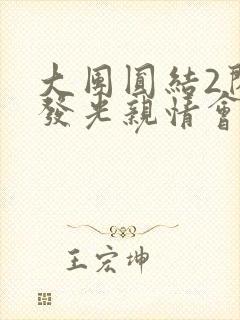 大團圓結2
發光親情會
王宏坤